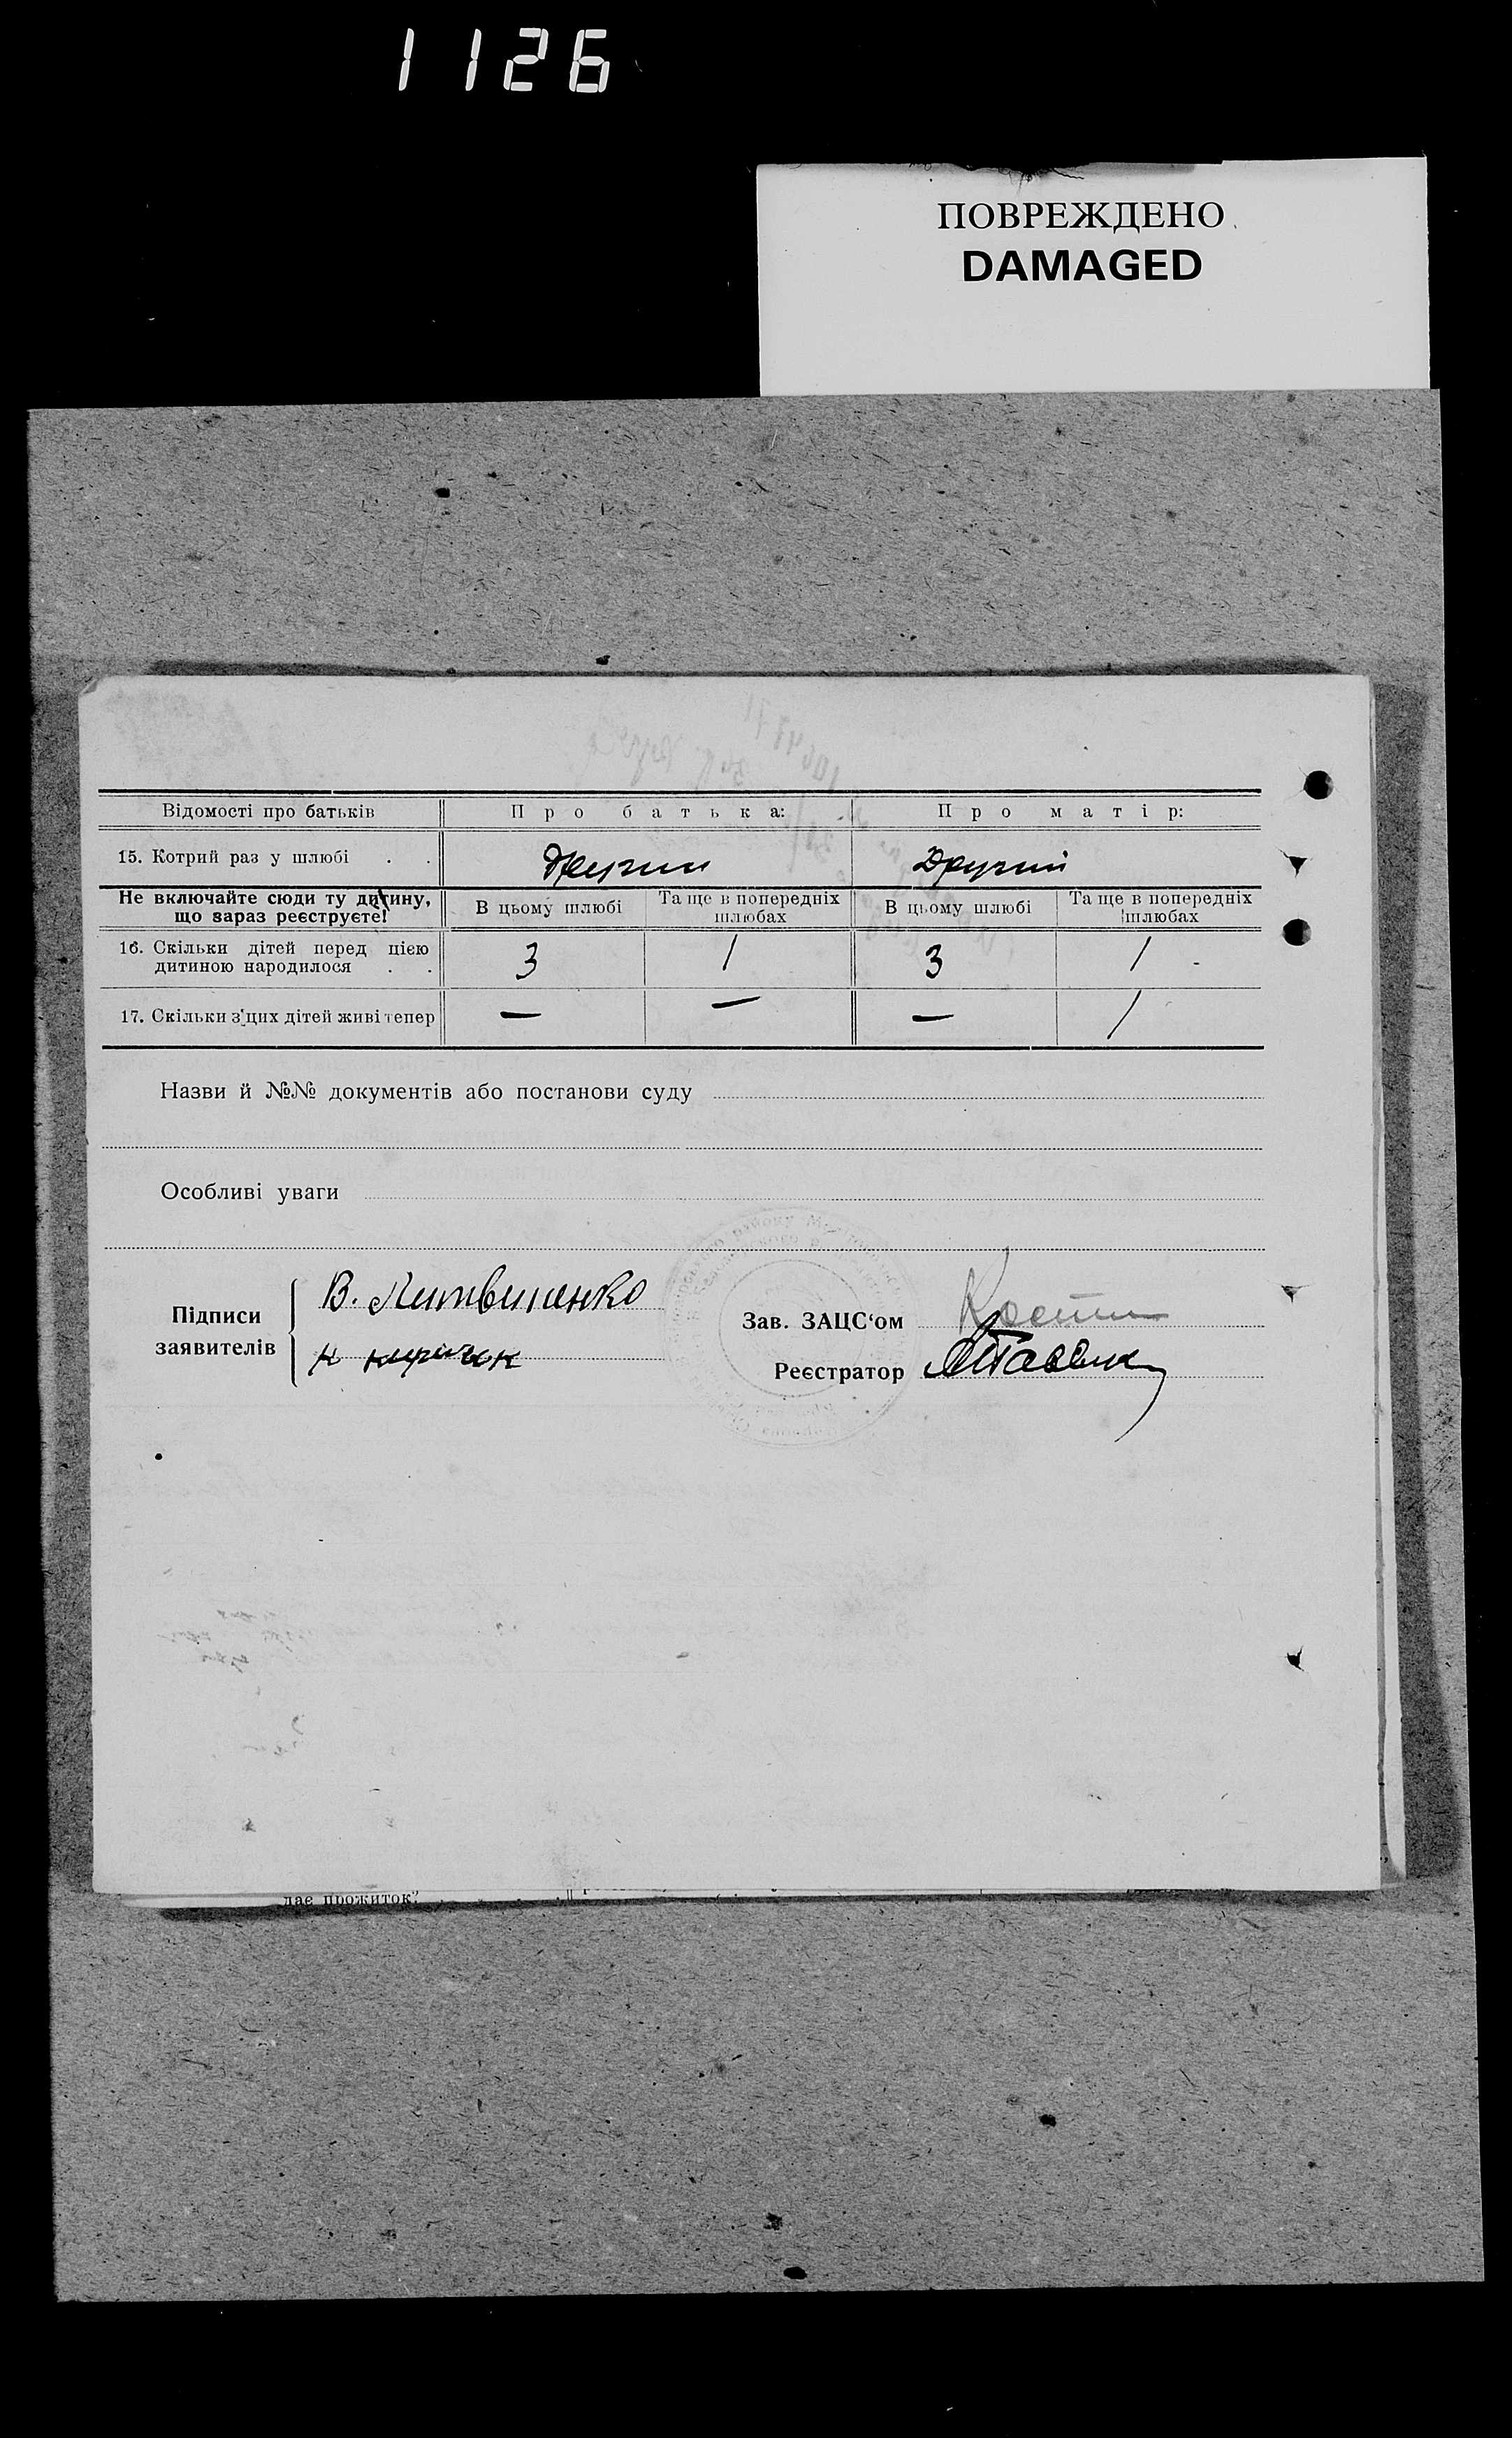 1126
ПОВРЕЖДЕНО
DAMAGED
Відомості про батьків Про батька: Про матір:
15. Котрий раз у шлюбі . . Другий Другий
Не включайте сюди ту дитину, що зараз реєструєте! В цьому шлюбі Та ще в попередніх шлюбах В цьому шлюбі Та ще в попередніх шлюбах
16. Скільки дітей перед цією
дитиною народилося . . 3 1 3 1
17. Скільки з цих дітей живі тепер — — — 1
Назви й №№ документів або постанови суду
Особливі уваги
Підписи заявителів
В. Литвиненко
Зав. ЗАЦС'ом
Реєстратор
дає прожиток?